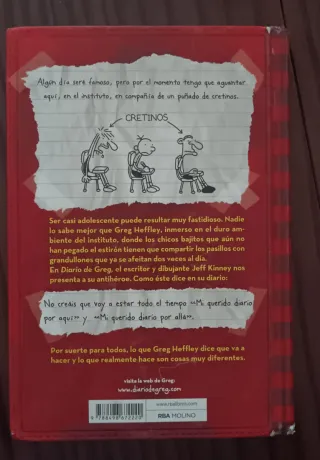 Algún día seré famoso, pero por el momento tengo que aguantar
aquí, en el instituto, en compañía de un puñado de cretinos.
CRETINOS
Ser casi adolescente puede resultar muy fastidioso. Nadie
lo sabe mejor que Greg Heffley, inmerso en el duro am-
biente del instituto, donde los chicos bajitos que aún no
han pegado el estirón tienen que compartir los pasillos con
grandullones que ya se afeitan dos veces al día.
En Diario de Greg, el escritor y dibujante Jeff Kinney nos
presenta a su antihéroe. Como éste dice en su diario:
No creáis que voy a estar todo el tiempo «Mi querido diario
por aquí» y «Mi querido diario por allá».
Por suerte para todos, lo que Greg Heffley dice que va a
hacer y lo que realmente hace son cosas muy diferentes.
visita la web de Greg:
www.diariodegreg.com
www.rbalibros.com
RBA MOLINO